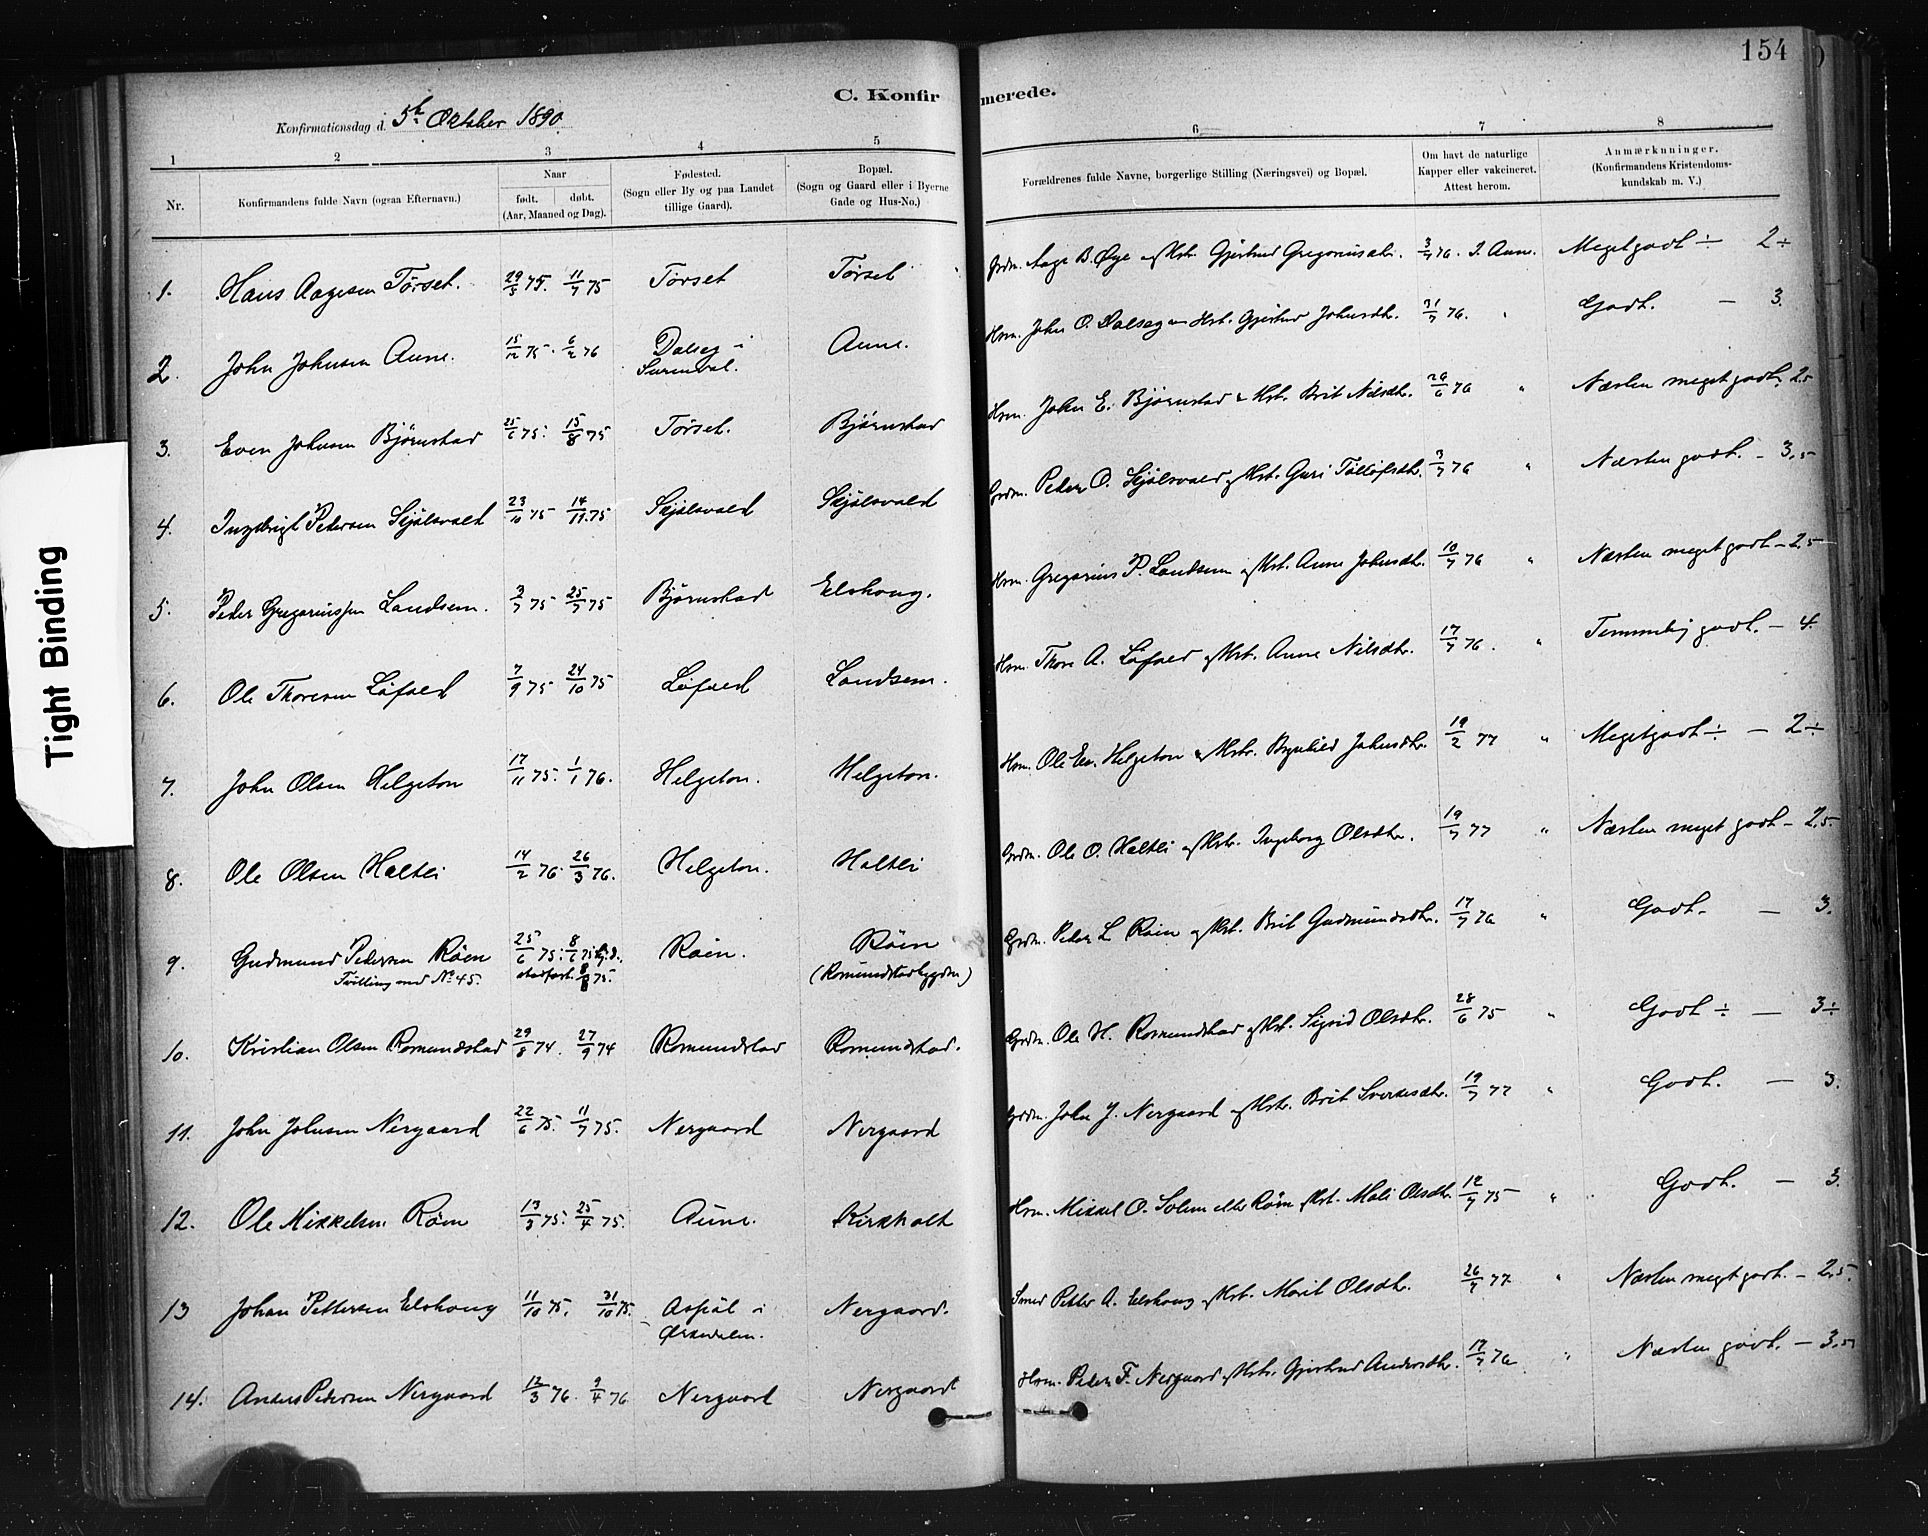 154
C. Konfirmerede.
Konfirmationsdag d. 5te Oktober 1890
1 2 3 4 5 6 7 8
Nr.
Konfirmandens fulde Navn (ogsaa Efternavn.)
Naar
født. døbt.
(Aar, Maaned og Dag).
Fødested.
(Sogn eller By og paa Landet
tillige Gaard).
Bopæl.
(Sogn og Gaard eller i Byerne
Gade og Hus-No.)
Forældrenes fulde Navne, borgerlige Stilling (Næringsvei) og Bopæl.
Om havt de naturlige
Kapper eller vakcineret.
Attest herom.
Anmærkninger.
(Konfirmandens Kristendoms-
kundskab m. V.)
1. Hans Aagesen Tørset. 29/5 75. 11/7 75 Tørset Tørset Grdm. Aage B. Øye og Kst. Gjertrud Gregoriusdtr. 3/7 76. J. Aune. Megetgodt ÷ 2÷
2. John Johnsen Aune. 15/12 75. 6/2 76 Dalseg i Aune. Hsm. John O. Dalseg og Kst. Gjertrud Johnsdtr. 31/7 76. " Godt. — 3.
Surendal.
3. Even Johnsen Bjørnstad 25/6 75. 15/8 75 Tørset. Bjørnstad Hsm. John E. Bjørnstad & Kst. Brit Nilsdtr. 29/6 76 " Næsten meget godt. 2.5
4. Ingebrigt Pedersen Skjølsvold 23/10 75 14/11 75 Skjølsvold Skjølsvold Grdm. Peder O. Skjølsvold og Kst. Guri Tollofsdtr. 3/7 76 " Næsten godt. — 3.5
5. Peder Gregoriussen Landsem. 3/7 75 25/7 75 Bjørnstad Elshoug. Hsm. Gregorius P. Landsem og Kst. Anne Johnsdtr. 10/7 76 " Næsten meget godt — 2.5
6. Ole Thoresen Løfald 7/9 75 24/10 75 Løfald Landsem. Hsm. Thore A. Løfald og Kst. Anne Nilsdtr. 17/7 76. " Temmelig godt. — 4.
7. John Olsen Helgeton 17/11 75. 1/1 76. Helgeton. Helgeton. Hsm. Ole Ev. Helgeton & Kst. Brynhild Johnsdtr. 19/2 77 " Megetgodt ÷ — 2÷
8. Ole Olsen Holtli 14/2 76. 26/3 76. Helgeton. Holtli Grdm. Ole O. Holtli og Kst. Ingeborg Olsdtr. 19/7 77 " Næsten meget godt — 2.5
9. Gudmund Pedersen Røen 25/6 75. 8/7 75 hj.d. Røen. Røen Grdm. Peder L. Røen og Kst. Brit Gudmundsdtr. 17/7 76 " Godt. — 3.
Tvilling med No 45. stadfæst. 8/8 75. (Romundstadbygden)
10. Kristian Olsen Romundstad 29/8 74. 27/9 74 Romundstad Romundstad. Grdm. Ole H. Romundstad og Kst. Sigrid Olsdtr. 28/6 75 " Godt ÷ — 3÷
11. John Johnsen Nergaard 22/6 75. 11/7 75. Nergaard Nergaard Grdm. John J. Nergaard og Kst. Brit Sverkesdtr. 19/7 77 " Godt. — 3.
12. Ole Mikkelsen Røen 13/3 75. 25/4 75. Aune. Kirkholt Hsm. Mikkel O. Solem eller Røen og Kst. Mali Olsdtr. 12/7 75 " Godt. — 3.
13 Johan Pettersen Elshoug 11/10 75. 31/10 75. Aspøl i Nergaard. Smed Petter A. Elshoug og Kst. Marit Olsdtr. 26/7 77 " Næsten meget godt. — 2.5.
Ørkedalen.
14. Anders Pedersen Nergaard 12/3 76. 9/4 76 Nergaard Nergaard Hsm. Peder F. Nergaard og Kst. Gjertrud Andersdtr. 17/7 76 " Næsten godt. — 3.5
Tight Binding